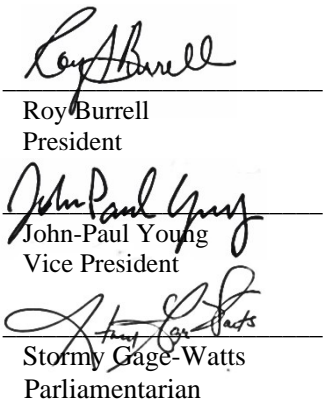 Roy A Burrell
Roy Burrell
President
John Paul Young
John-Paul Young
Vice President
Stormy Gage-Watts
Stormy Gage-Watts
Parliamentarian